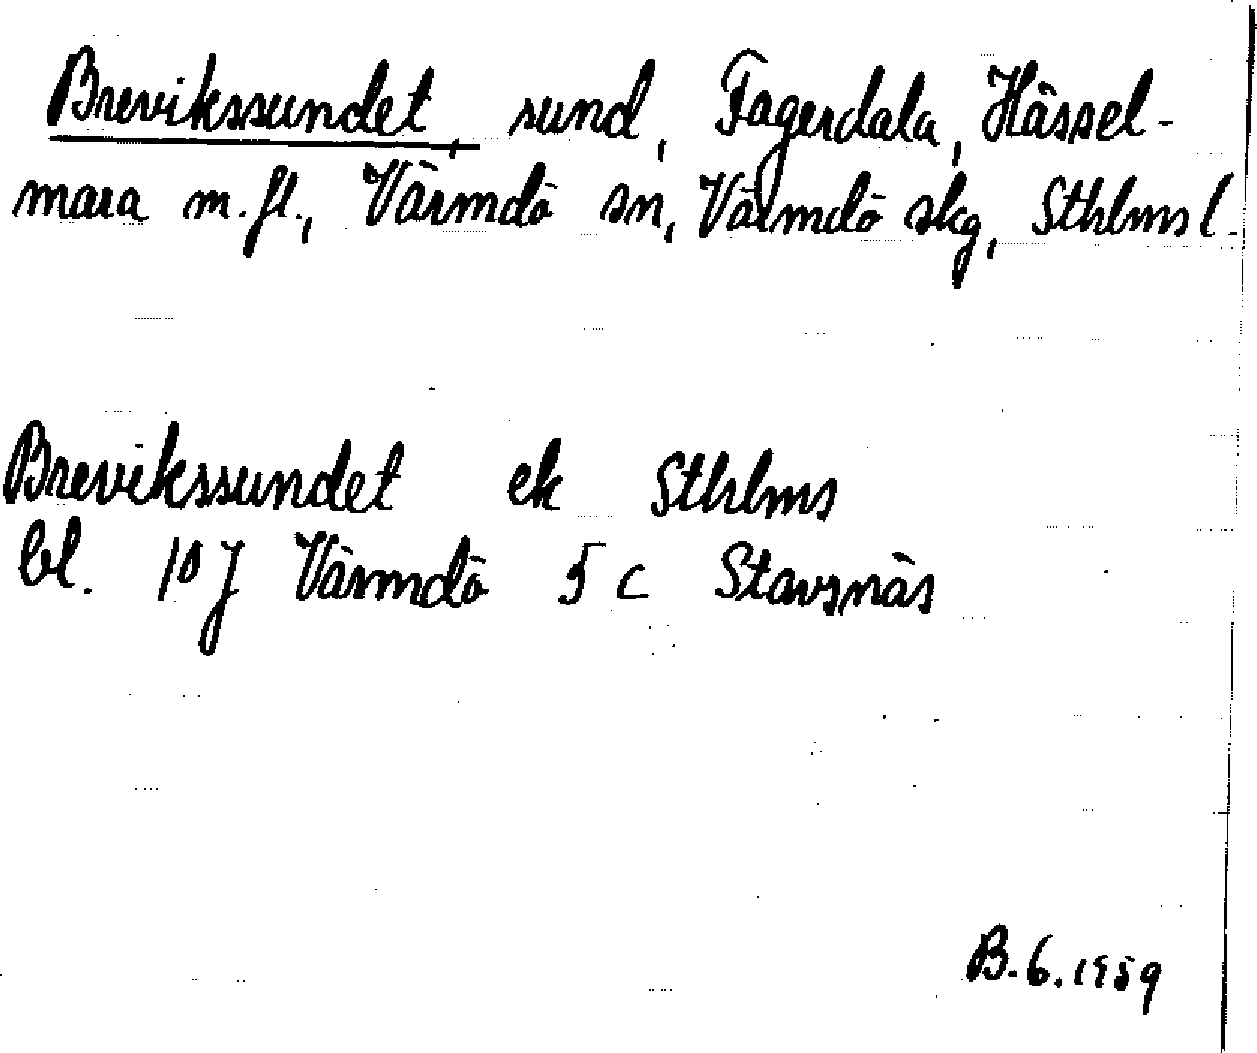 Brevikssundet, sund, Fagerdala, Hässel-
mara m.fl., Värmdö sn, Värmdö skg, Sthlms l.
Brevikssundet ek Sthlms
bl. 10 J Värmdö 5 c Stavsnäs
B.G. 1959